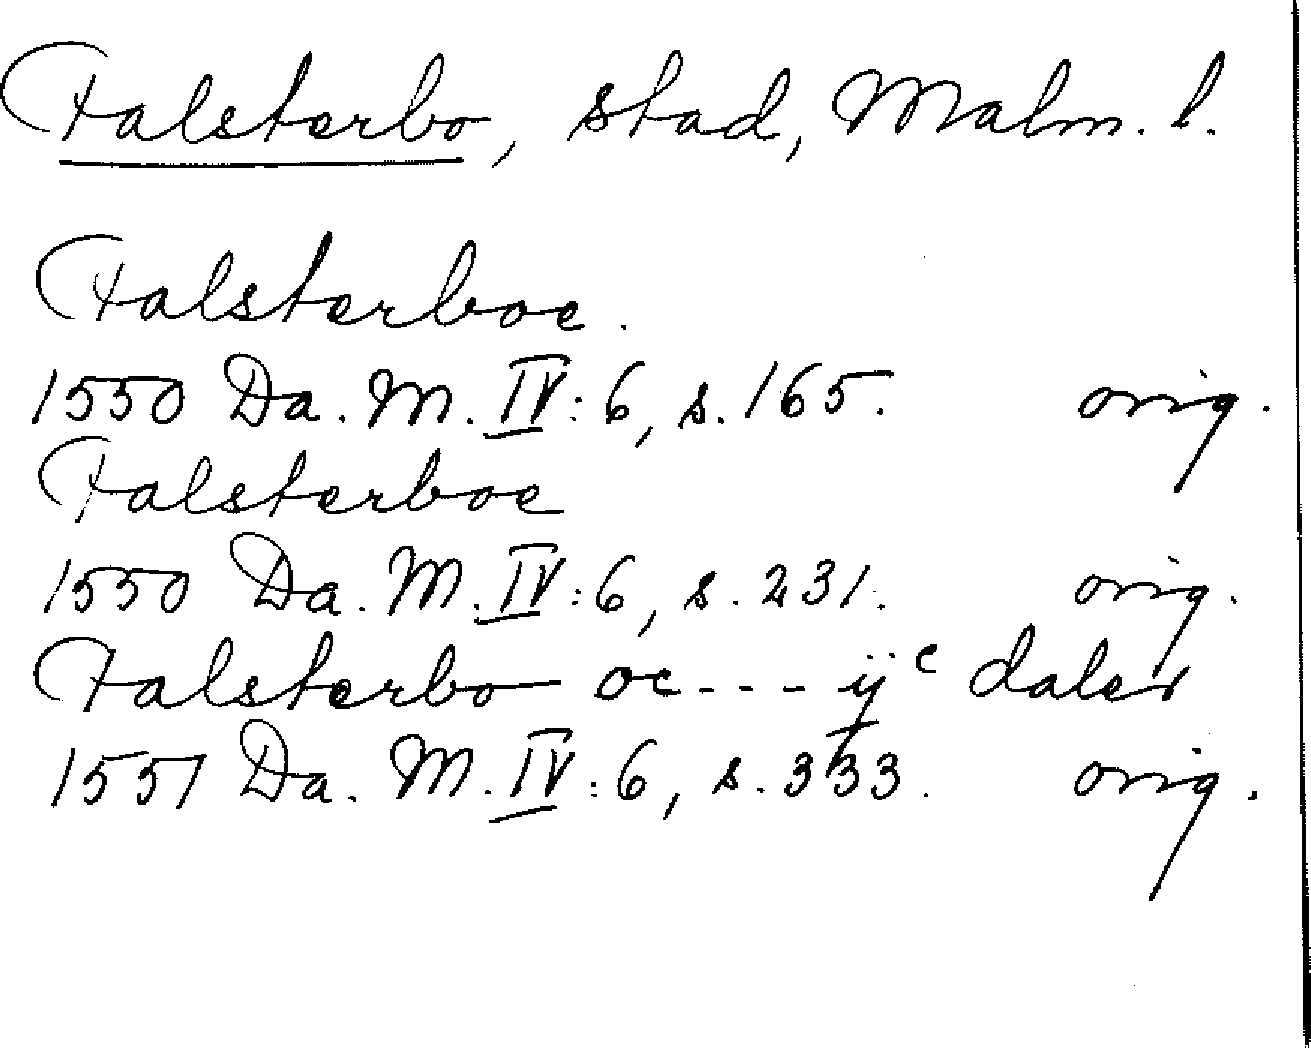 Falsterbo, stad, Malm. l.
Falsterboe.
1550 Da. M. IV: 6, s. 165. orig.
Falsterboe
1550 Da. M. IV: 6, s. 231. orig.
Falsterbo oc - - - ÿᶜ daler
1551 Da. M. IV: 6, s. 333. orig.